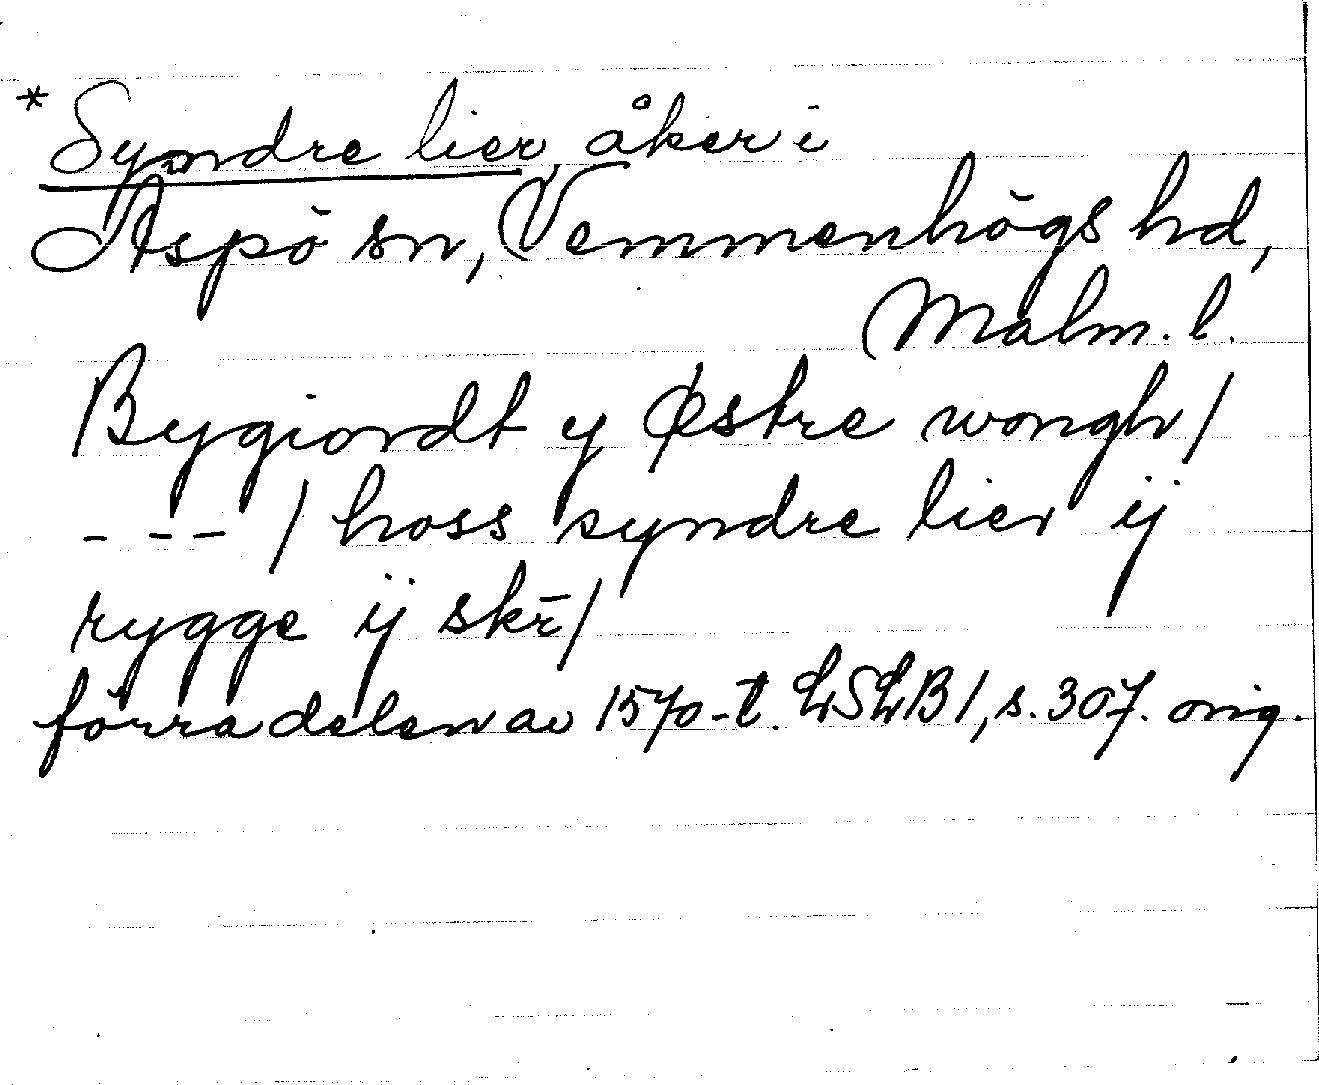 * Syndre lier, åker i
Aspö sn, Vemmenhögs hd,
Malm. l.
Bygiordt y Østre wongh /
- - - / hoss syndre lier ij
rygge ij skr̄ /
förra delen av 1570-t. LSLB 1, s. 307. orig.